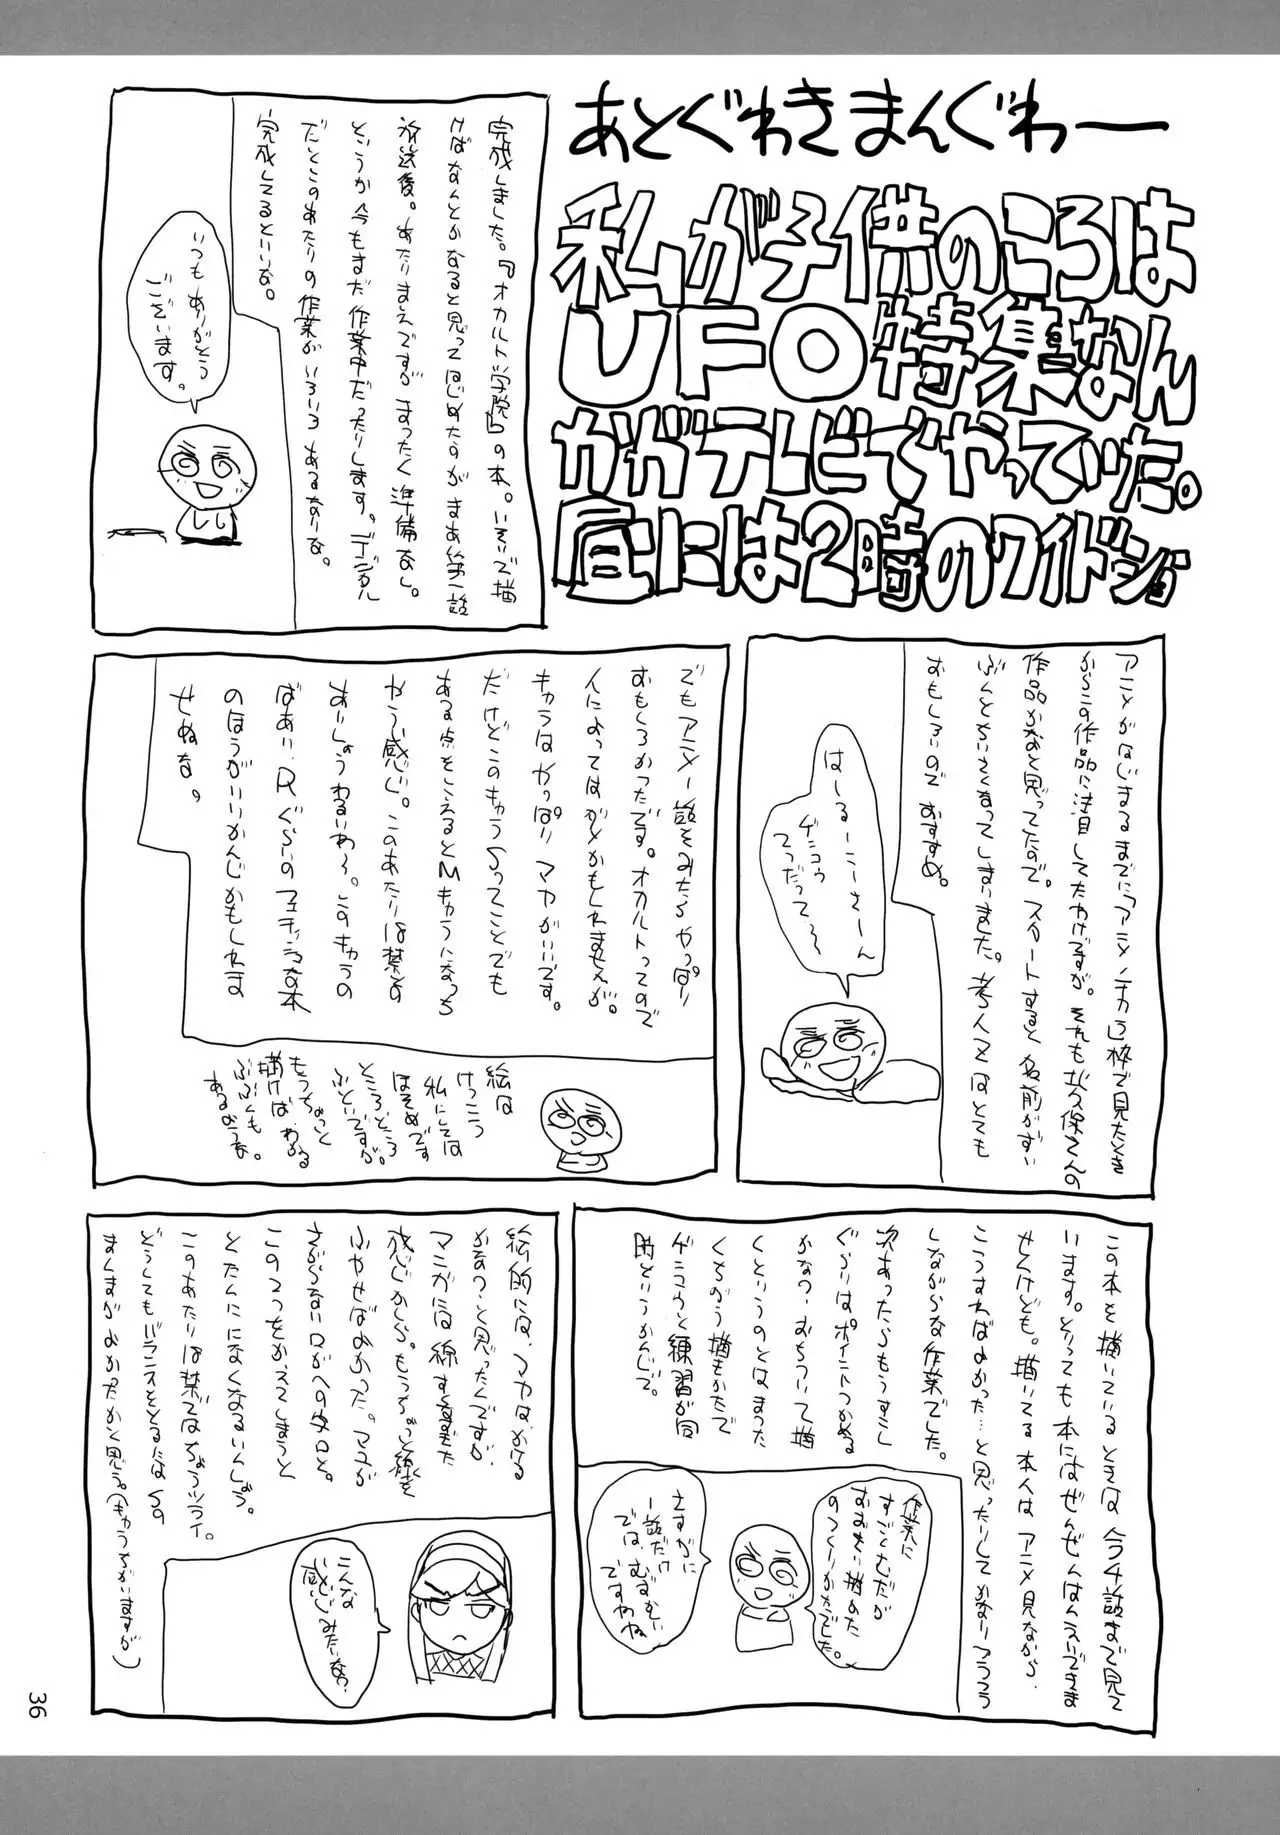 あとぐわきまんぐわー
私が子供のころは
UFO特集なん
かがテレビでやっていた。
昼には2時のワイドショ
完成しました。『オカルト学院』の本。いそいで描
けばなんとかなると思ってはじめたのがまあ第一話
放送後。あたりまえですがまったく準備なし。
というか今もまだ作業中だったりします。デジタル
だとこのあたりの作業がいろいろあるなりな。
完成してるといいな。
いつもありがとう
ございます。
アニメがはじまるまでに「アニメノチカラ」枠で見たとき
からこの作品に注目してたわけですが。それも
作品かなと思ってたので。スタートすると名前がずい
ぶんとちいさくなってしまいました。
おもしろいのでおすすめ。
はしるーこーさーん
ゲンコウ
てつだって〜
でもアニメ一話をみたらやっぱり
おもしろかったです。オカルトってので
人によってはダメかもしれませんが。
キャラはやっぱりマヤがいいです。
だけどこのキャラSってことでも
ある点をこえるとMキャラになっち
ゃう感じ。このあたりは禁の
あいしょうわるいわ〜。このキャラの
ばあい、Rぐらいのフェチッシュな本
のほうがいいかんじかもしれま
せぬな。
絵は
けっこう
私にしては
ほそめです
ところどころ
ふといですが。
もうちょっと
描けば、わかる
ぶぶんも
あるかうな。
この本を描いているときは今4話まで見て
います。とっても本にはぜんぜんはんえいできま
せんけども。描いてる本人はアニメ見ながら
こうすればよかった…と思ったりしてかなりアウアウ
しながらな作業でした。
次あったらもうすこし
ぐらいはポイントつかめる
かなっ・おちついて描
くというのとはまった
くちがう描きかたで
ゲンコウと練習が同
時というかんじで。
作業に
すごくむだが
おおきい描めた
のつくーかたでした。
さすがに
一話だけ
ではむずかしい
ですわね
絵的には、マヤは、かなる
かなっ・と思ったんですが
マンガには線すくなすぎた
感じかしら。もうちょっと線を
ふやせばよかった。マユが
さがらないのがへの字口と。
この2つをかえてしまうと
とたんにになくなるいんしょう。
このあたりは禁ではちょうツライ。
どうしてもバランスをとるにはSの
ましまがよかったかと思う。(キャラちがいますが)
こんな
感じみたいな?
36